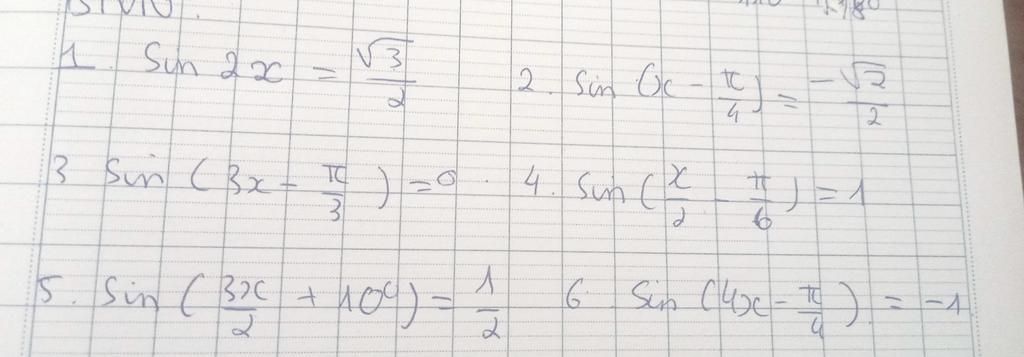 BTVN.
1. Sin 2x = √3/2 2. Sin (x - π/4) = -√2/2
3 Sin (3x - π/3) = 0. 4. Sin (x/2 - π/6) = 1
5. Sin (3x/2 + 10°) = 1/2 6. Sin (4x - π/4). = -1